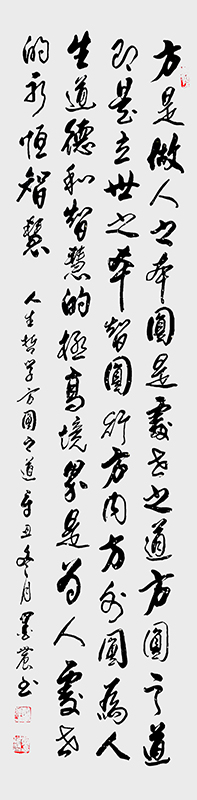 方是做人之本圓是處世之道方圓之道
即是立世之本智圓行方内方外圓為人
生道德和智慧的極高境界是为人處世
的永恒智慧
人生哲学方圆之道辛丑冬月墨農书